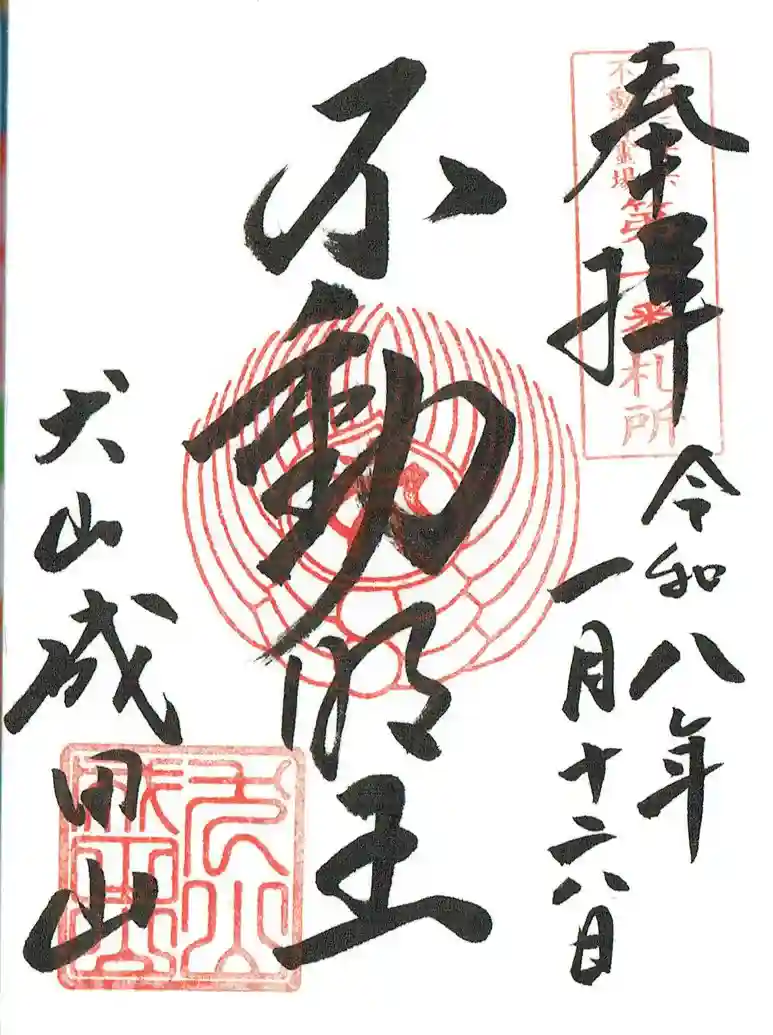 奉拝
令和八年
一月十六日
不動明王
犬山成田山
不動尊霊場
第一番札所